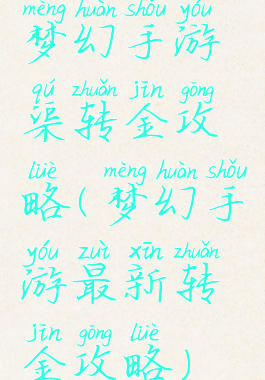 mèng huàn shǒu yóu
梦幻手游
qú zhuǎn jīn gōng
渠转金攻
lüè mèng huàn shǒu
略(梦幻手
yóu zuì xīn zhuǎn
游最新转
jīn gōng lüè
金攻略)